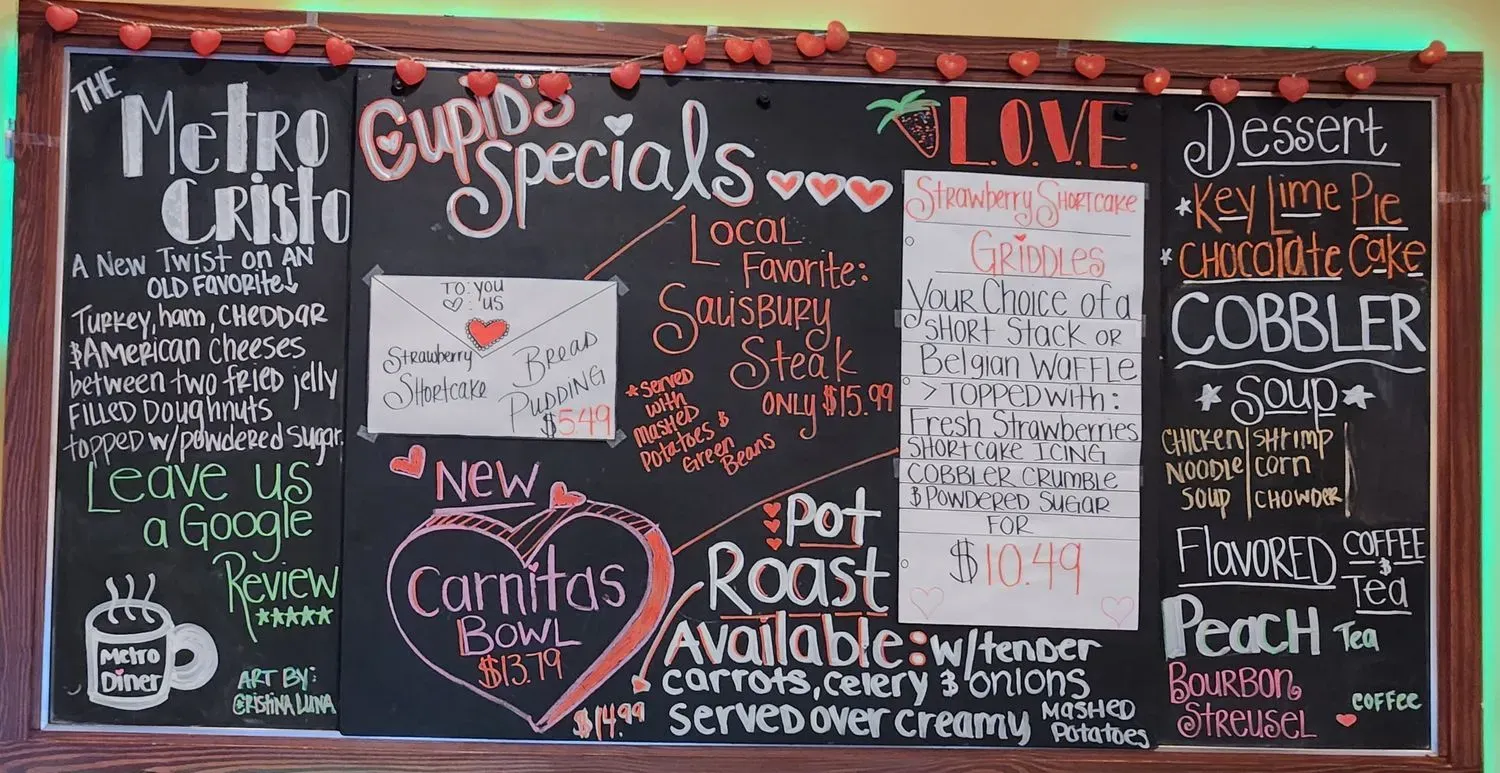 THE
Metro
Cristo
A New Twist on AN
OLD FAVORITE!
Turkey, ham, CHEDDAR
& AMERICAN CHEESES
between two fried jelly
FILLED Doughnuts
topped w/powdered sugar.
Leave us
a Google
Review
★★★★★
Metro
Diner
ART BY:
CRISTINA LUNA
Cupid's
Specials
TO: you
♡: us
Strawberry
Shortcake
Bread
Pudding
$5.49
Local
Favorite:
Salisbury
Steak
ONLY $15.99
*Served
with
Mashed
Potatoes &
Green
Beans
New
Carnitas
Bowl
$13.79
Pot
Roast
Available: w/tender
carrots, celery & onions
served over creamy Mashed
Potatoes
$14.99
L.O.V.E.
Strawberry Shortcake
Griddles
Your Choice of a
short stack or
Belgian Waffle
> Topped with:
Fresh Strawberries
shortcake icing
cobbler crumble
& powdered sugar
for
$10.49
Dessert
*Key Lime Pie
*Chocolate Cake
COBBLER
★ Soup ★
Chicken
Noodle
Soup
Shrimp
Corn
Chowder
Flavored Coffee
& Tea
Peach Tea
Bourbon
Streusel coffee